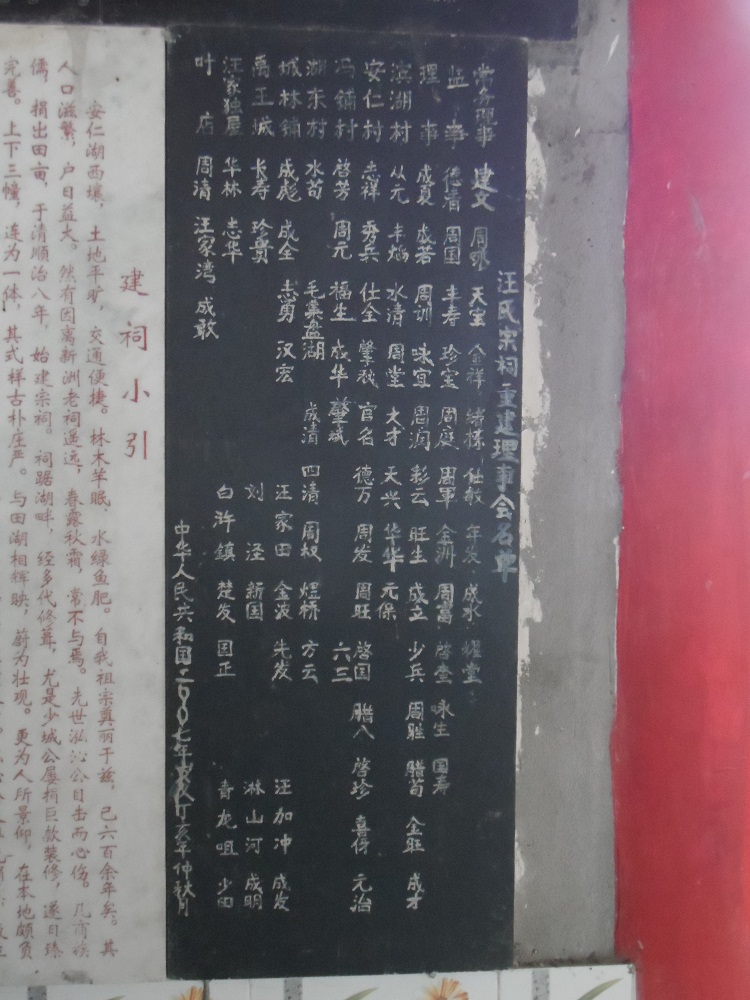 汪氏宗祠重建理事会名单
常务理事 建文 周 天宝 金祥 绪 仕敏 年发 成水 耀堂
监事 德清 周国 丰寿 珍宝 周庭 周军 金洲 周富 启奎 咏生 国寿
理事 成夏 成若 周训 味宜 周润 彩云 旺生 成立 少兵 周胜 腊苟 金旺 成才
滨湖村 从元 丰焰 水清 周堂 大才 天兴 华华 元保
安仁村 志祥 秀兵 仕全 肇 官名 德万 周发 周旺 启国 腊八 启珍 喜得 元治
冯铺村 启芳 周元 福生 成华 肇斌 六三
湖东村 水苟 毛 盘湖 成清 四清 周 煜桥 方云
城林铺 成彪 成全 志勇 汉宏 汪家田 金波 先发 汪加冲 成发
禹王城 长寿 珍贵 刘 泾 新国 淋山河 成明
汪家独屋 华林 志华 白浒镇 楚发 国正 青龙咀 少田
叶店 周清 汪家湾 成敢
中华人民共和国二00七年 丁亥年仲秋月
建祠小引
安仁湖西壤，土地平旷，交通便捷。林木芊眠，水绿鱼肥。自我祖宗奠丽于兹，已六百余年矣。其
人口滋繁，户日益大。然有因离新洲老祠遥远，春露秋霜，常不与焉。先世泓沁公目击而心伤。几商族
儒，捐出田亩，于清顺治八年，始建宗祠。祠踞湖畔，经多代修葺，尤是少城公屡捐巨款装修，遂日臻
完善。上下三幢，连为一体，其式样古朴庄严。与田湖相辉映，蔚为壮观。更为人所景仰，在本地颇负